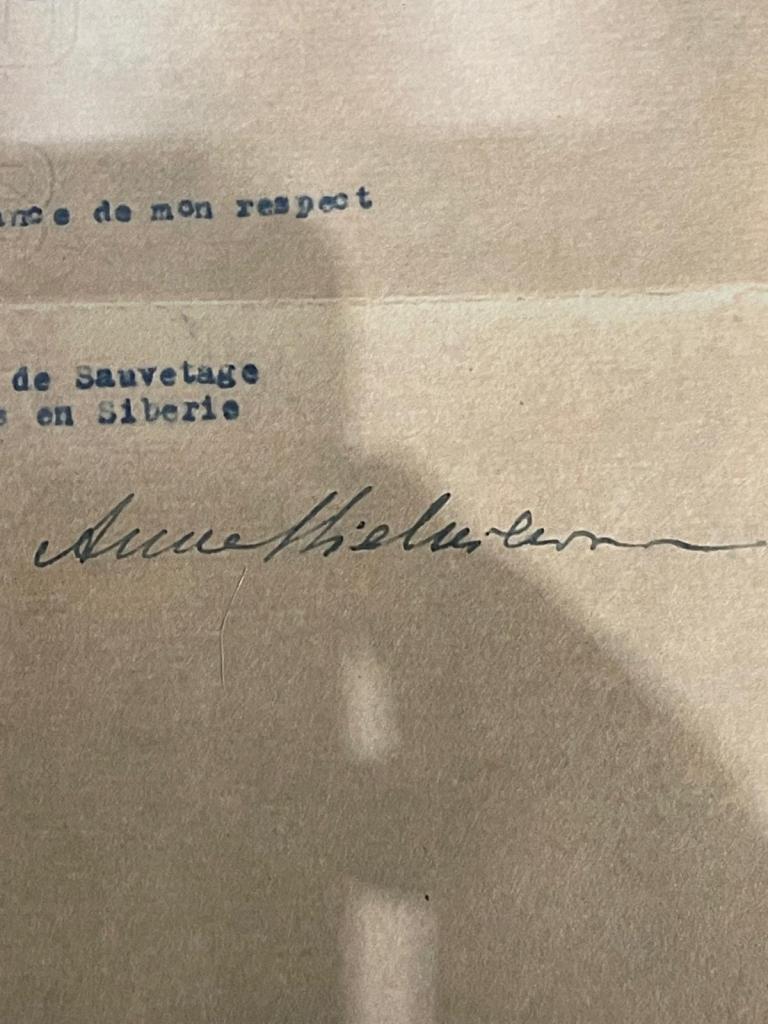 ance de mon respect
de Sauvetage
s en Siberie
Anne